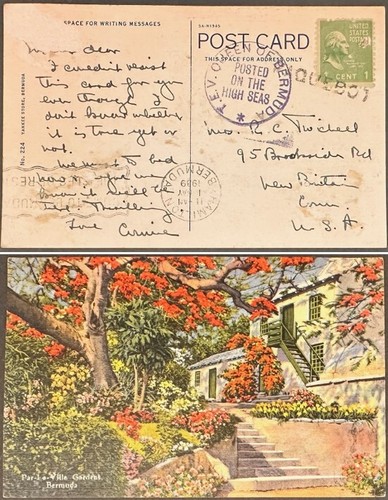 SPACE FOR WRITING MESSAGES
5A-H1945
POST CARD
THIS SPACE FOR ADDRESS ONLY
T.E.V. QUEEN OF BERMUDA
POSTED
ON THE
HIGH SEAS
PAQUEBOT
UNITED STATES
POSTAGE
1 CENT 1
HAMILTON
BERMUDA
1939
No. 224
YANKEE STORE, BERMUDA
My dear
I couldn't resist
this card for you
even though I
don't know whether
it is true yet or
not.
We went to bed
now &
know it will be
Thrilling
Love
Mrs. R. C. Twichell
95 Brookside Rd
New Britain
Conn.
U.S.A.
Par-La-Ville Gardens,
Bermuda